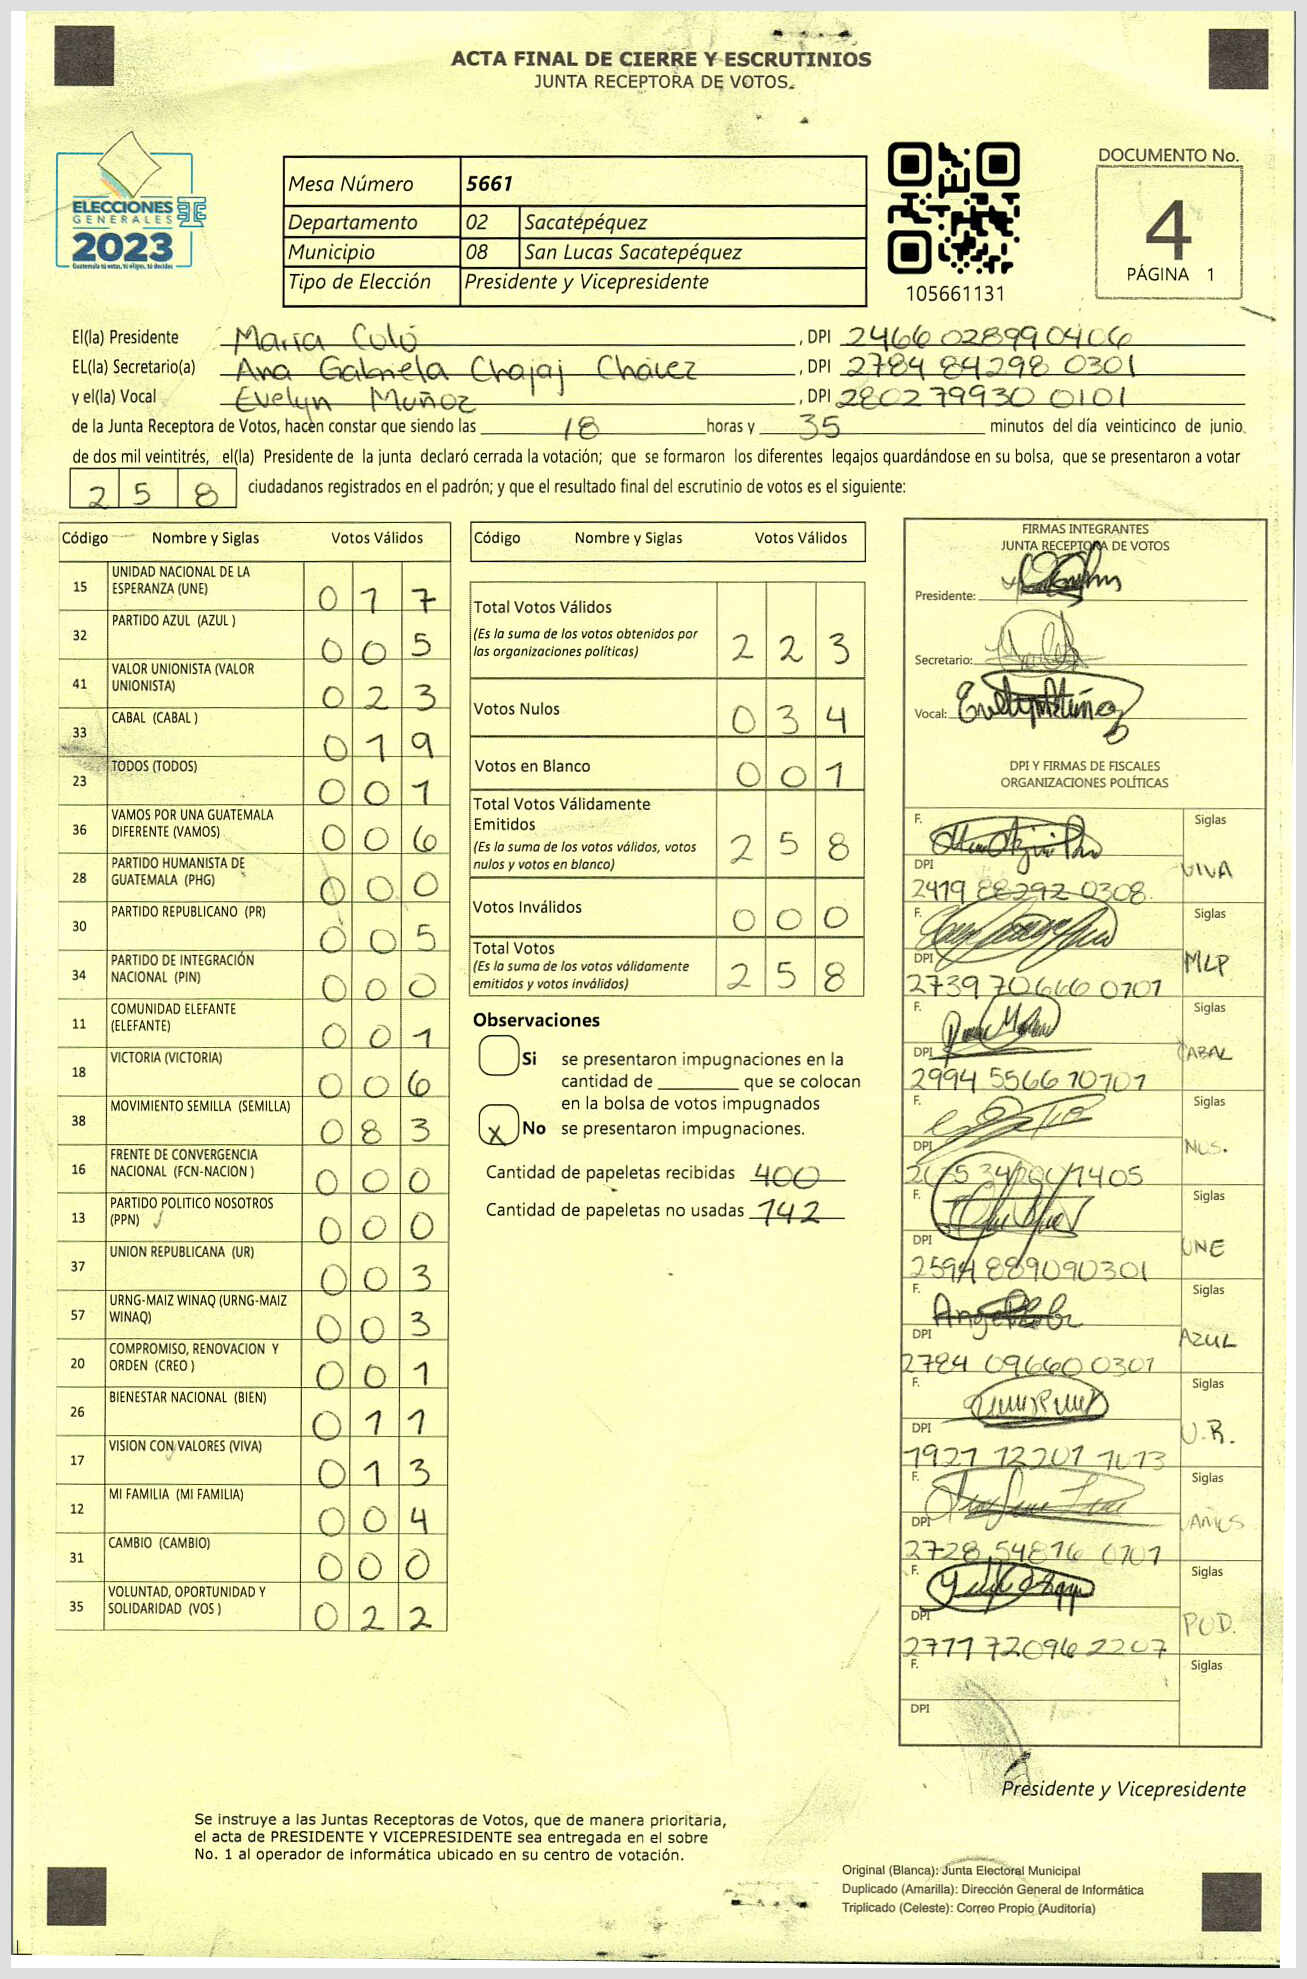 ACTA FINAL DE CIERRE Y ESCRUTINIOS
JUNTA RECEPTORA DE VOTOS.
ELECCIONES
GENERALES
2023
Guatemala tú votas, tú eliges, tú decides
TSE
Mesa Número 5661
Departamento 02 Sacatepéquez
Municipio 08 San Lucas Sacatepéquez
Tipo de Elección Presidente y Vicepresidente
105661131
DOCUMENTO No.
4
PÁGINA 1
El(la) Presidente María Coló , DPI 2466 02899 0406
EL(la) Secretario(a) Ana Gabriela Chajaj Chávez , DPI 2784 84298 0301
y el(la) Vocal Evelyn Muñoz , DPI 2802 79930 0101
de la Junta Receptora de Votos, hacen constar que siendo las 18 horas y 35 minutos del día veinticinco de junio
de dos mil veintitrés, el(la) Presidente de la junta declaró cerrada la votación; que se formaron los diferentes legajos guardándose en su bolsa, que se presentaron a votar
258 ciudadanos registrados en el padrón; y que el resultado final del escrutinio de votos es el siguiente:
Código Nombre y Siglas Votos Válidos
15 UNIDAD NACIONAL DE LA ESPERANZA (UNE) 017
32 PARTIDO AZUL (AZUL ) 005
41 VALOR UNIONISTA (VALOR UNIONISTA) 023
33 CABAL (CABAL ) 019
23 TODOS (TODOS) 001
36 VAMOS POR UNA GUATEMALA DIFERENTE (VAMOS) 006
28 PARTIDO HUMANISTA DE GUATEMALA (PHG) 000
30 PARTIDO REPUBLICANO (PR) 005
34 PARTIDO DE INTEGRACIÓN NACIONAL (PIN) 000
11 COMUNIDAD ELEFANTE (ELEFANTE) 001
18 VICTORIA (VICTORIA) 006
38 MOVIMIENTO SEMILLA (SEMILLA) 083
16 FRENTE DE CONVERGENCIA NACIONAL (FCN-NACION ) 000
13 PARTIDO POLITICO NOSOTROS (PPN) 000
37 UNION REPUBLICANA (UR) 003
57 URNG-MAIZ WINAQ (URNG-MAIZ WINAQ) 003
20 COMPROMISO, RENOVACION Y ORDEN (CREO ) 001
26 BIENESTAR NACIONAL (BIEN) 011
17 VISION CON VALORES (VIVA) 013
12 MI FAMILIA (MI FAMILIA) 004
31 CAMBIO (CAMBIO) 000
35 VOLUNTAD, OPORTUNIDAD Y SOLIDARIDAD (VOS ) 022
Código Nombre y Siglas Votos Válidos
Total Votos Válidos 223
(Es la suma de los votos obtenidos por
las organizaciones políticas)
Votos Nulos 034
Votos en Blanco 001
Total Votos Válidamente
Emitidos 258
(Es la suma de los votos válidos, votos
nulos y votos en blanco)
Votos Inválidos 000
Total Votos 258
(Es la suma de los votos válidamente
emitidos y votos inválidos)
Observaciones
Si se presentaron impugnaciones en la
cantidad de ________ que se colocan
en la bolsa de votos impugnados
X No se presentaron impugnaciones.
Cantidad de papeletas recibidas 400
Cantidad de papeletas no usadas 142
FIRMAS INTEGRANTES
JUNTA RECEPTORA DE VOTOS
Presidente:
Secretario:
Vocal: Evelyn Muñoz
DPI Y FIRMAS DE FISCALES
ORGANIZACIONES POLÍTICAS
F. Siglas
DPI VIVA
2419 88292 0308
F. Siglas
DPI MLP
2739 70666 0101
F. Siglas
DPI CABAL
2994 55667 0101
F. Siglas
DPI
F. Siglas
DPI UNE
2594 88909 0301
F. Siglas
DPI AZUL
2784 09660 0301
F. Siglas
DPI U.R.
1927 12201 1013
F. Siglas
DPI
2728 54816 0101
F. Siglas
DPI
2771 72096 2207
F. Siglas
DPI
Presidente y Vicepresidente
Se instruye a las Juntas Receptoras de Votos, que de manera prioritaria,
el acta de PRESIDENTE Y VICEPRESIDENTE sea entregada en el sobre
No. 1 al operador de informática ubicado en su centro de votación.
Original (Blanca): Junta Electoral Municipal
Duplicado (Amarilla): Dirección General de Informática
Triplicado (Celeste): Correo Propio (Auditoría)